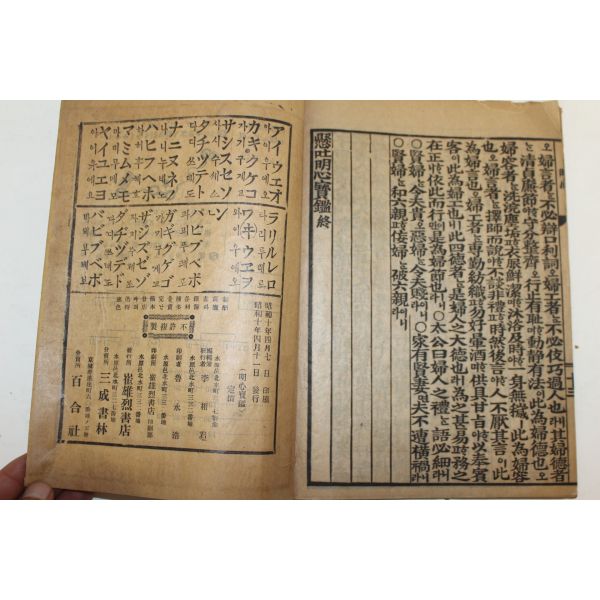 오 婦言者는 不必辯口利詞오 婦工者는 不必伎巧過人也라 其婦德者
는 淸貞廉節하야 守分整齊하고 行止有耻하며 動靜有法이니 此爲婦德也오
婦容者는 洗浣塵垢하야 衣服鮮潔하며 沐浴及時하야 一身無穢니 此爲婦容
也오 婦言者는 擇師而說하야 不談非禮하고 時然後言하야 人不厭其言이니 此
爲婦言也오 婦工者는 專勤紡織하고 勿好暈酒하며 供具甘旨하야 以奉賓
客이니 此爲婦工也니라 此四德者는 是婦人之大德也라 爲之甚易하고 務之
在正하니 依此而行하면 是爲婦節也니라 ○太公曰婦人之禮는 語必細니라
○賢婦는 令夫貴오 惡婦는 令夫賤이니라 ○家有賢妻면 夫不遭橫禍니라
○賢婦는 和六親하고 佞婦는 破六親이니라
懸吐明心寶鑑 終
アイウエオ
아이우에오
カキクケコ
가기구게고
サシスセソ
사시수세소
タチツテト
다디두데도
ナニヌネノ
나니누네노
ハヒフヘホ
하히후헤호
マミムメモ
마미무메모
ヤイユエヨ
야이유에요
ラリルレロ
라리루레로
ワヰウヱヲ
와이우에오
ン
パピプペポ
ガギグゲゴ
ザジズゼゾ
ダヂヅデド
バビブベボ
昭和十年四月七日 印刷
昭和十年四月十一日 發行
(明心寶鑑)
定價
不許複製
發行者 李
印刷者 魯水浩
印刷所 崔雄烈書店 印刷部
發行所 崔雄烈書店
分賣所 三成書林
分賣所 百合社